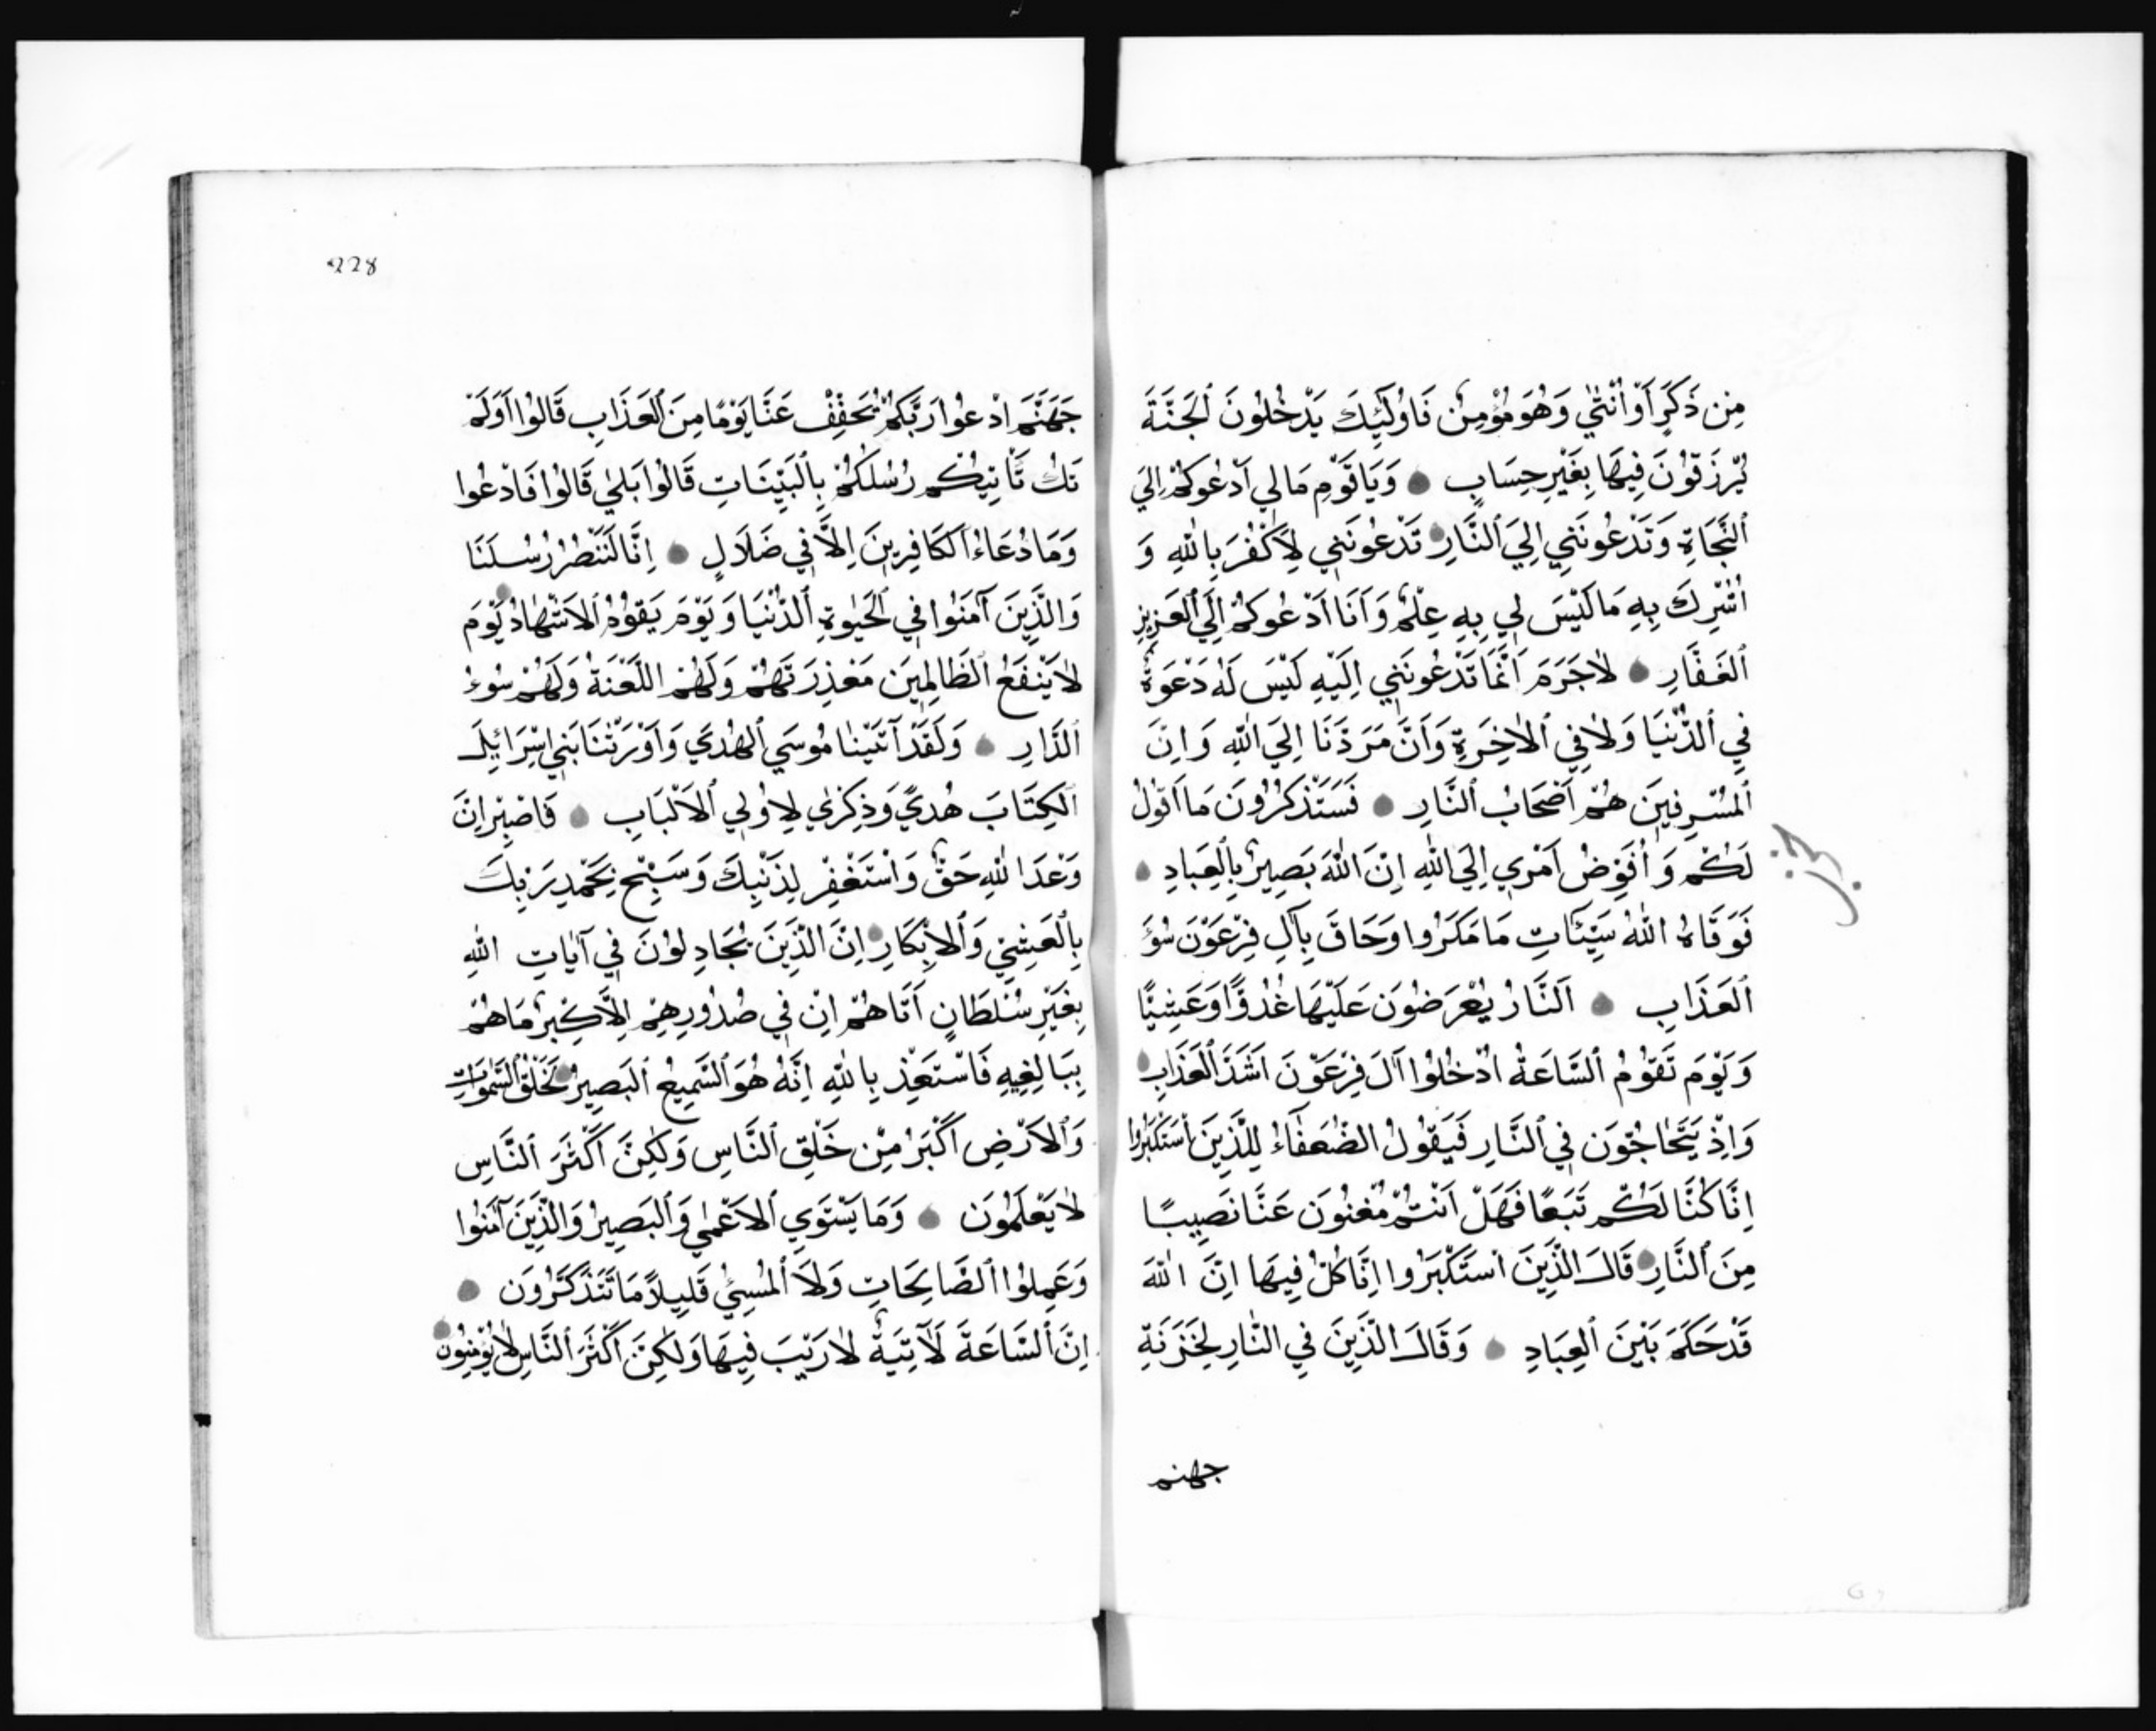 مِن ذَكَرٍ اَوْ اُنْثٰي وَهُوَ مُؤْمِنٌ فَاوُلٰٓئِكَ يَدْخُلُونَ اَلجَنَّةَ
يُرْزَقوُنَ فِيهَا بِغَيْرِ حِسَابٍ وَيَا قَوْمِ مَا لِي اَدْعُوكُمْ اِلَي
اَلنَّجَاةِ وَتَدْعُونَنِي اِلَي اَلنَّارِ تَدْعُونَنِي لِاَكْفُرَ بِاللهِ وَ
اُشْرِكَ بِهِ مَا لَيْسَ لِي بِهِ عِلْمٌ وَاَنَا اَدْعُوكُمْ اِلَي اَلعَزِيزِ
اَلغَفَّارِ لاٰ جَرَمَ اَنَّمَا تَدْعُونَنِي اِلَيْهِ لَيْسَ لَهُ دَعْوَةٌ
فِي اَلدُّنْيَا وَلاٰ فِي اَلاٰخِرَةِ وَاَنَّ مَرَدَّنَا اِلَي اللهِ وَاِنَّ
اَلمُسْرِفِينَ هُمْ اَصْحَابُ اَلنَّارِ فَسَتَذْكُرُونَ مَا اَقوُلُ
لَكُم وَاُفَوِّضُ اَمْرِي اِلَي اللهِ اِنَّ اللهَ بَصِيرٌ بِالْعِبَادِ
حزب
فَوَقَاهُ اللهُ سَيِّئَاتِ مَا مَكَرُوا وَحَاقَ بِآلِ فِرْعَوْنَ سُوٓءَ
اَلعَذَابِ اَلنَّارُ يُعْرَضوُنَ عَلَيْهَا غُدُوًّا وَعَشِيًّا
وَيَوْمَ تَقوُمُ اَلسَّاعَةُ اَدْخُلُوا آلَ فِرْعَوْنَ اَشَدَّ اَلْعَذَابِ
وَاِذْ يَتَحَاجُّونَ فِي اَلنَّارِ فَيَقوُلُ الضُعَفَآءُ لِلَّذِينَ اسْتَكْبَرُوا
اِنَّا كُنَّا لَكُم تَبَعًا فَهَلْ اَنْتُمْ مُغْنُونَ عَنَّا نَصِيبًا
مِنَ اَلنَّارِ قَالَ الَّذِينَ اسْتَكْبَرُوا اِنَّا كُلٌّ فِيهَا اِنَّ اللهَ
قَدْ حَكَمَ بَيْنَ اَلعِبَادِ وَقَالَ الَّذِينَ فِي النَّارِ لِخَزَنَةِ
جهنم
228
جَهَنَّمَ ادْعُوا رَبَّكُمْ يُخَفِّفْ عَنَّا يَوْمًا مِنَ اَلعَذَابِ قَالوُا اَوَلَمْ
تَكُ تَأْتِيكُم رُسُلُكُمْ بِالْبَيِّنَاتِ قَالوُا بَلٰي قَالوُا فَادْعُوا
وَمَا دُعَاءُ اَلكَافِرِينَ اِلاَّ فِي ضَلَالٍ اِنَّا لَنَنْصُرُ رُسُلَنَا
وَالَّذِينَ آمَنوُا فِي اَلحَيٰوةِ اَلدُّنْيَا وَيَوْمَ يَقوُمُ اَلاَشْهَادُ يَوْمَ
لاٰ يَنْفَعُ اَلظَّالِمِينَ مَعْذِرَتَهُمْ وَلَهُمْ اللَّعْنَةُ وَلَهُمْ سُوءُ
اَلدَّارِ وَلَقَدْ آتَيْنَا مُوسَي اَلهُدَي وَاَوْرَثْنَا بَنِي اِسْرَائِيلَ
اَلكِتَابَ هُدًي وَذِكْرٰي لِاوُلِي اَلاَلْبَابِ فَاصْبِرْ اِنَّ
وَعْدَ اللهِ حَقٌّ وَاسْتَغْفِرْ لِذَنْبِكَ وَسَبِّحْ بِحَمْدِ رَبِّكَ
بِالْعَشِيِّ وَاَلاِبْكَارِ اِنَّ الَّذِينَ يُجَادِلوُنَ فِي آيَاتِ اللهِ
بِغَيْرِ سُلْطَانٍ اَتَاهُمْ اِنْ فِي صُدُورِهِمْ اِلَّا كِبْرٌ مَا هُمْ
بِبَالِغِيهِ فَاسْتَعِذْ بِاللهِ اِنَّهُ هُوَ اَلسَّمِيعُ اَلبَصِيرُ لَخَلْقُ اَلسَّمٰوَاتِ
وَاَلاَرْضِ اَكْبَرُ مِنْ خَلْقِ اَلنَّاسِ وَلٰكِنَّ اَكْثَرَ اَلنَّاسِ
لاٰ يَعْلَمُونَ وَمَا يَسْتَوِي اَلاَعْمٰي وَاَلبَصِيرُ وَالَّذِينَ آمَنوُا
وَعَمِلوُا اَلصَّالِحَاتِ وَلَا اَلمُسِئُ قَلِيلاً مَا تَتَذَكَّرُونَ
اِنَّ اَلسَّاعَةَ لَآتِيَةٌ لاٰ رَيْبَ فِيهَا وَلٰكِنَّ اَكْثَرَ اَلنَّاسِ لاٰ يُؤْمِنُونَ